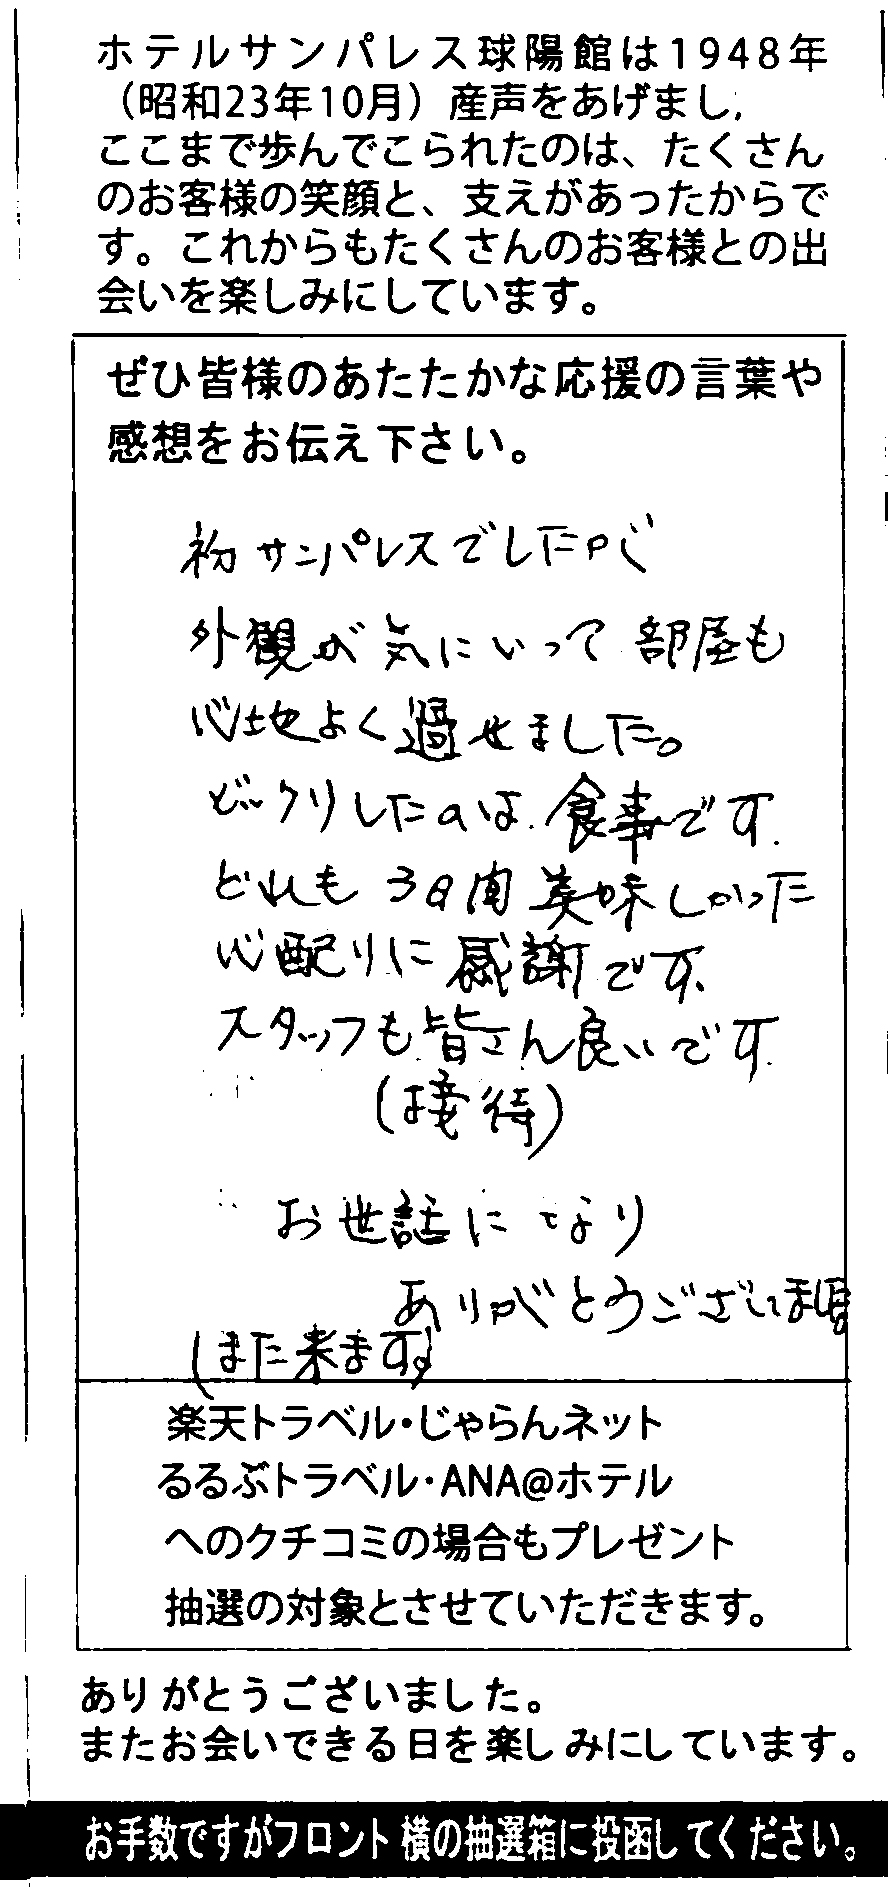 ホテルサンパレス球陽館は1948年
（昭和23年10月）産声をあげまし,
ここまで歩んでこられたのは、たくさん
のお客様の笑顔と、支えがあったからで
す。これからもたくさんのお客様との出
会いを楽しみにしています。
ぜひ皆様のあたたかな応援の言葉や
感想をお伝え下さい。
初サンパレスでしたが
外観が気にいって 部屋も
心地よく過せました。
ビックリしたのは、食事です.
どれも 3日間 美味しかった
心配りに感謝です、
スタッフも皆さん良いです
(接待)
お世話になり
ありがとうございます
(また来ます。)
楽天トラベル・じゃらんネット
るるぶトラベル・ANA@ホテル
へのクチコミの場合もプレゼント
抽選の対象とさせていただきます。
ありがとうございました。
またお会いできる日を楽しみにしています。
お手数ですがフロント横の抽選箱に投函してください。